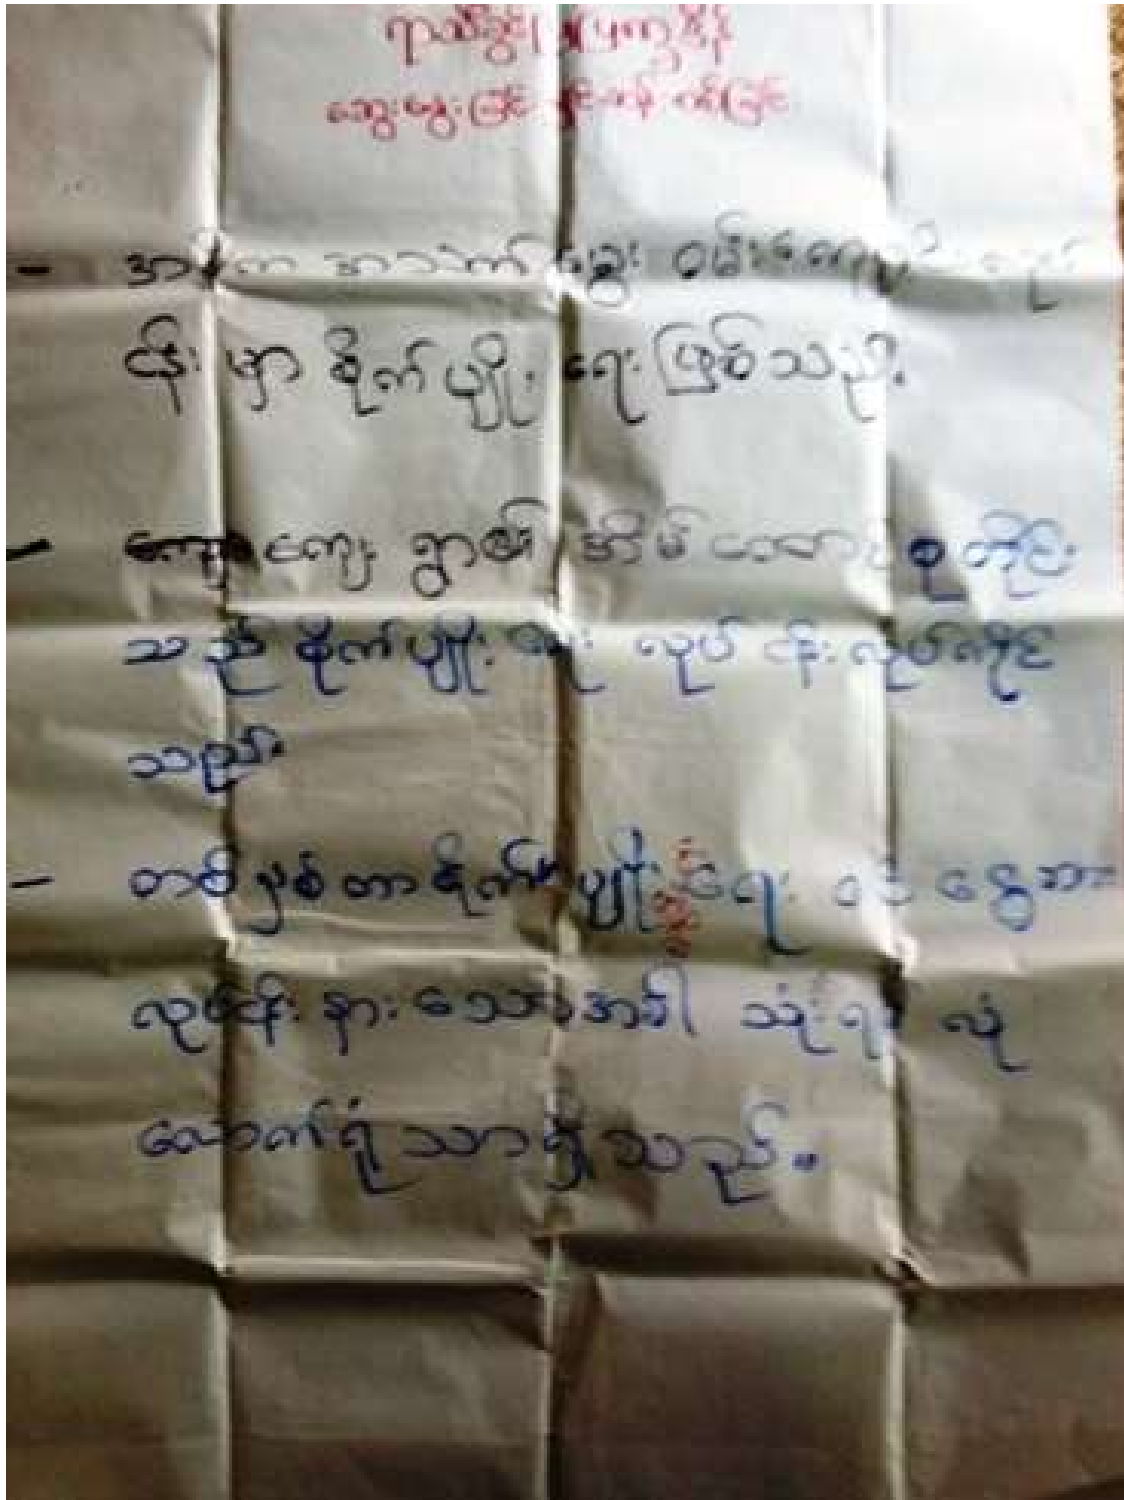 ရာသီခွင် ပြက္ခဒိန်
ဆွေးနွေးခြင်း နှင့်
- အဓိက အသက် မွေး ဝမ်းကျောင်း လုပ်
ငန်း မှာ စိုက် ပျိုး ရေး ဖြစ် သည်.
- ကျေး ရွာ၏ အိမ် ထောင် စု တိုင်း
သည် စိုက် ပျိုး ရေး လုပ် ငန်း လုပ်ကိုင်
သည်။
- တစ် နှစ် တာ စိုက် ပျိုး ရေး ဝင် ငွေ အား
လုပ်ငန်း နား သော အခါ သုံး ရန် လုံ
လောက် ရုံ သာ ရှိ သည်.